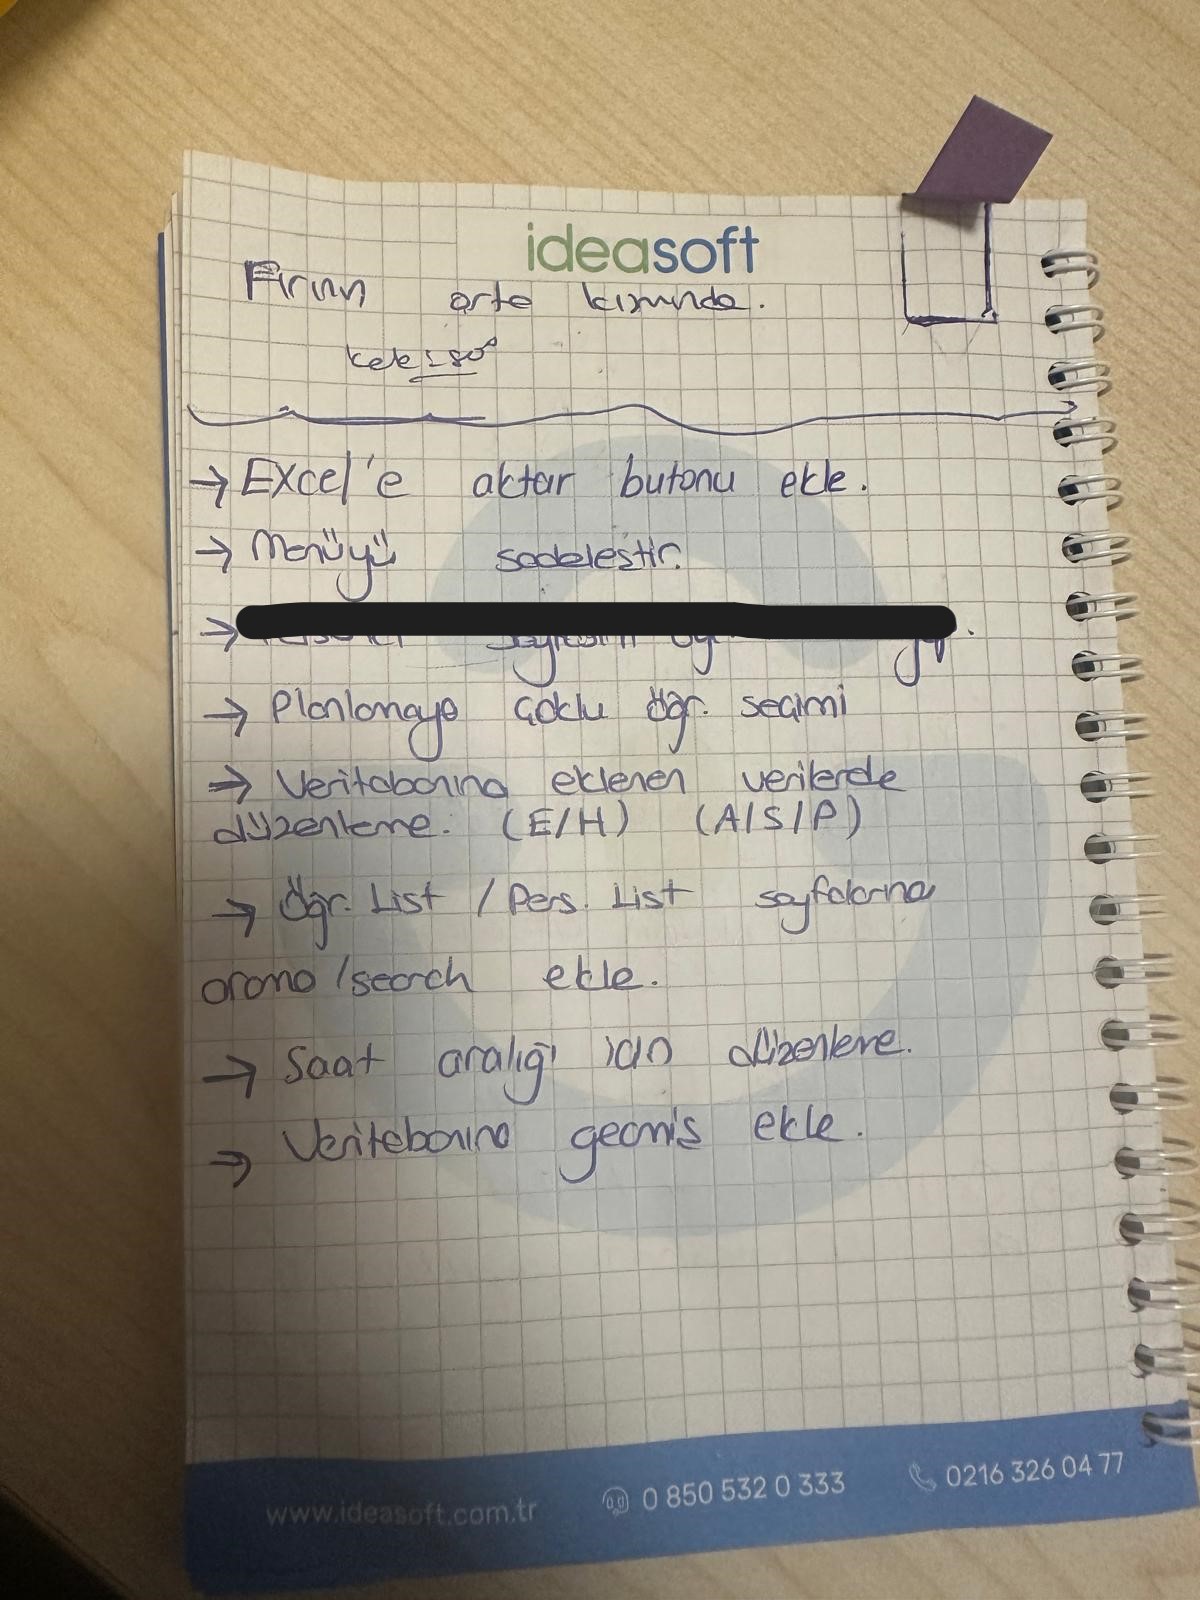 ideasoft
Fırının orta kısmında.
kek 180°
→ Excel'e aktar butonu ekle.
→ Menüyü sadeleştir.
→
→ Planlamaya çoklu öğr. seçimi
→ Veritabanına eklenen verilerde
düzenleme. (E/H) (A/S/P)
→ Öğr. List / Pers. List sayfalarına
arama /search ekle.
→ Saat aralığı için düzenleme.
→ Veritabanına geçmiş ekle.
www.ideasoft.com.tr 0 850 532 0 333 0216 326 04 77